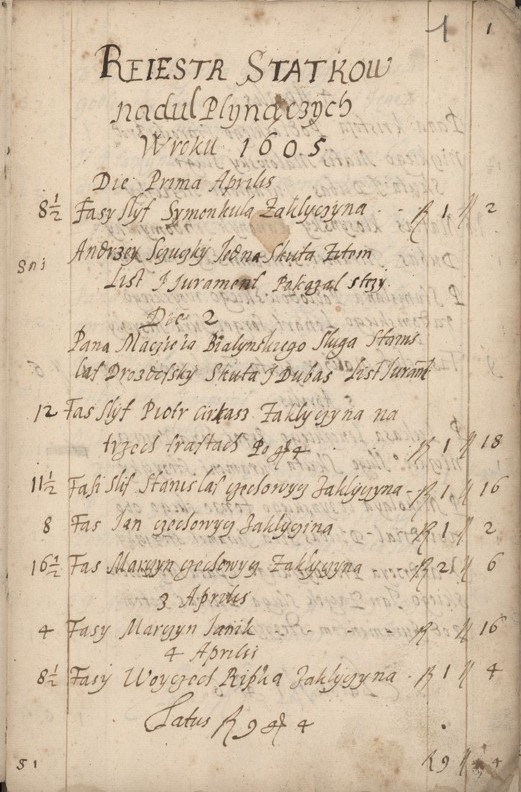 1 1
REIESTR STATKOW
nadul Plynączych
W roku 1605
Die Prima Aprilis
8 1/2 Fasy Slyf Symonkula Zaklyczyna fl 1 // 2
Andrzey Jedna Skuta Zitom
List I Jurament Pokazal
Die 2
Pana Macieia Bialynskiego Sluga Stanis
laf Drozdefsky Skuta I Dubas List Jurant
12 Fas Slyf Piotr Zaklyczyna na
trzech traftach Po 4 fl 1 // 18
11 1/2 Fasi Slif Stanislaf Zaklyczyna fl 1 // 16
8 Fas Jan Zaklyczina fl 1 // 2
16 1/2 Fas Marczyn Zaklyczyna fl 2 // 6
3 Aprilis
4 Fasy Marczyn Janik fl // 16
4 Aprilis
8 1/2 Fasy Woyczech Ripka Zaklyczyna fl 1 // 4
Latus fl 9 4
51 fl 9 // 4